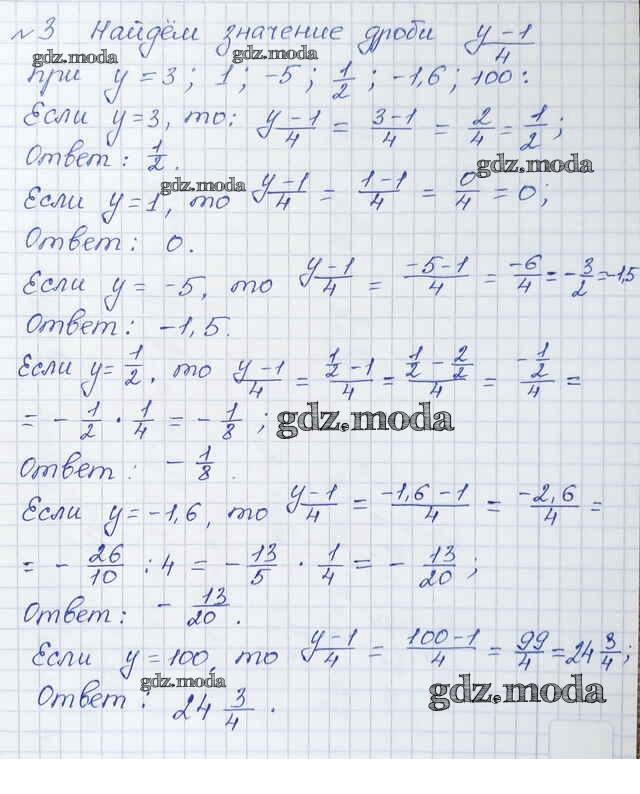 №3 Найдём значение дроби (y-1)/4
gdz.moda gdz.moda
при y = 3 ; 1 ; -5 ; 1/2 ; -1,6 ; 100:
Если y=3, то: (y-1)/4 = (3-1)/4 = 2/4 = 1/2 ;
Ответ: 1/2. gdz.moda
gdz.moda
Если y=1, то (y-1)/4 = (1-1)/4 = 0/4 = 0;
Ответ: 0. gdz.moda
Если y = -5, то (y-1)/4 = (-5-1)/4 = -6/4 = -3/2 = -1,5
Ответ: -1,5. gdz.moda
Если y=1/2, то (y-1)/4 = (1/2-1)/4 = (1/2-2/2)/4 = (-1/2)/4 =
= -1/2 · 1/4 = -1/8 ; gdz.moda
Ответ: -1/8.
Если y=-1,6, то (y-1)/4 = (-1,6-1)/4 = -2,6/4 =
= -26/10 : 4 = -13/5 · 1/4 = -13/20 ;
Ответ: -13/20.
Если y=100, то (y-1)/4 = (100-1)/4 = 99/4 = 24 3/4 ;
gdz.moda gdz.moda
Ответ: 24 3/4.